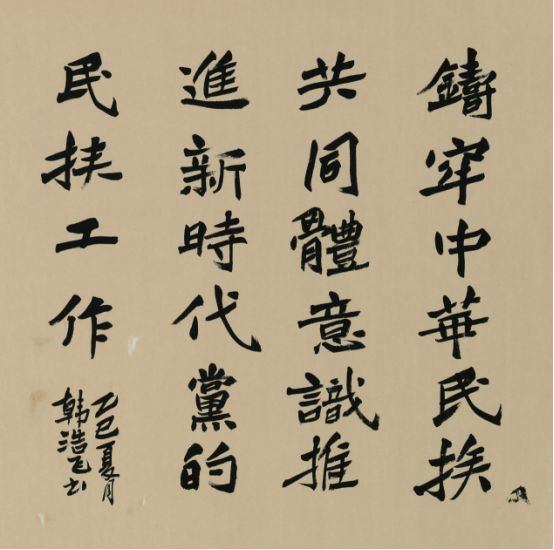 鑄牢中華民族
共同體意識推
進新時代黨的
民族工作
乙巳夏月
韩浩飞书